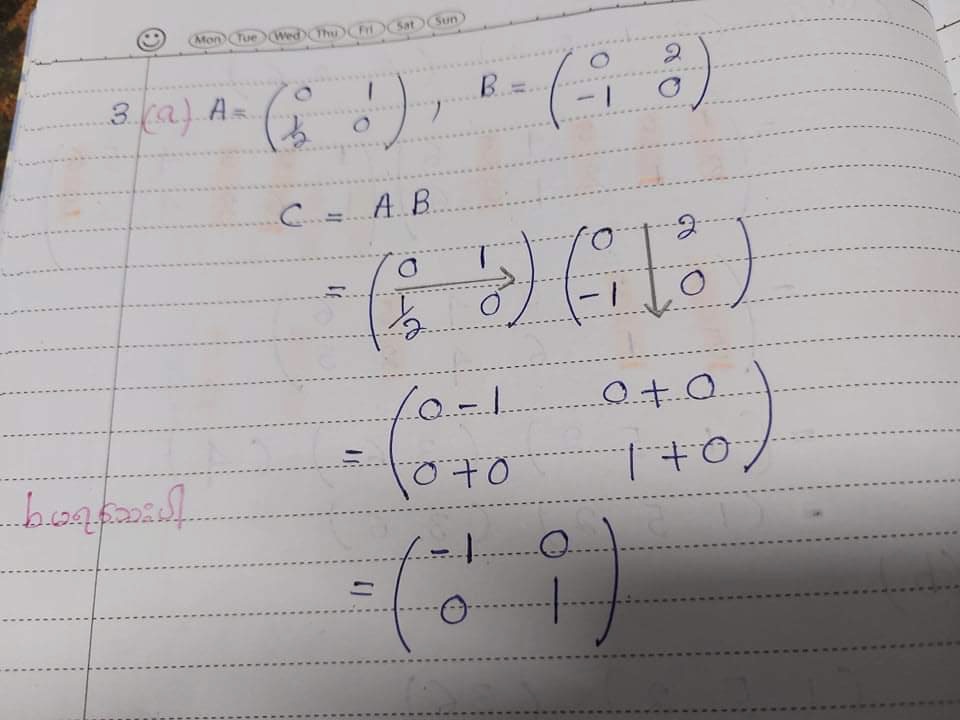 Mon Tue Wed Thu Fri Sat Sun
3 (a) A = (0 1 1/2 0) , B = (0 2 -1 0)
C = A B
= (0 1 1/2 0) (0 2 -1 0)
= (0 - 1 0 + 0 0 + 0 1 + 0)
= (-1 0 0 1)